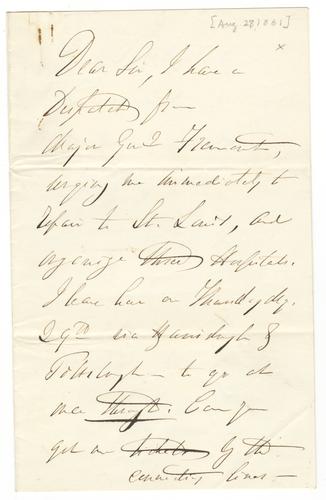 [Aug 28, 1861]
x
Dear Sir, I have a
Dispatch from
Major Genl Fremont,
urging me immediately to
repair to St. Louis, and
organize those Hospitals.
I leave here on Thursday
29th via Harrisburgh &
Pittsburgh — to go at
once through. Can you
get me tickets by the
connecting lines —